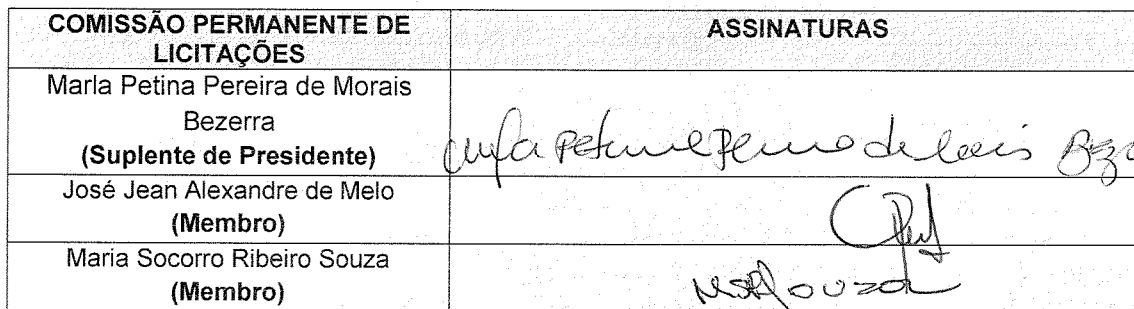 COMISSÃO PERMANENTE DE
LICITAÇÕES
ASSINATURAS
Marla Petina Pereira de Morais
Bezerra
(Suplente de Presidente)
José Jean Alexandre de Melo
(Membro)
Maria Socorro Ribeiro Souza
(Membro)
MSRSouza